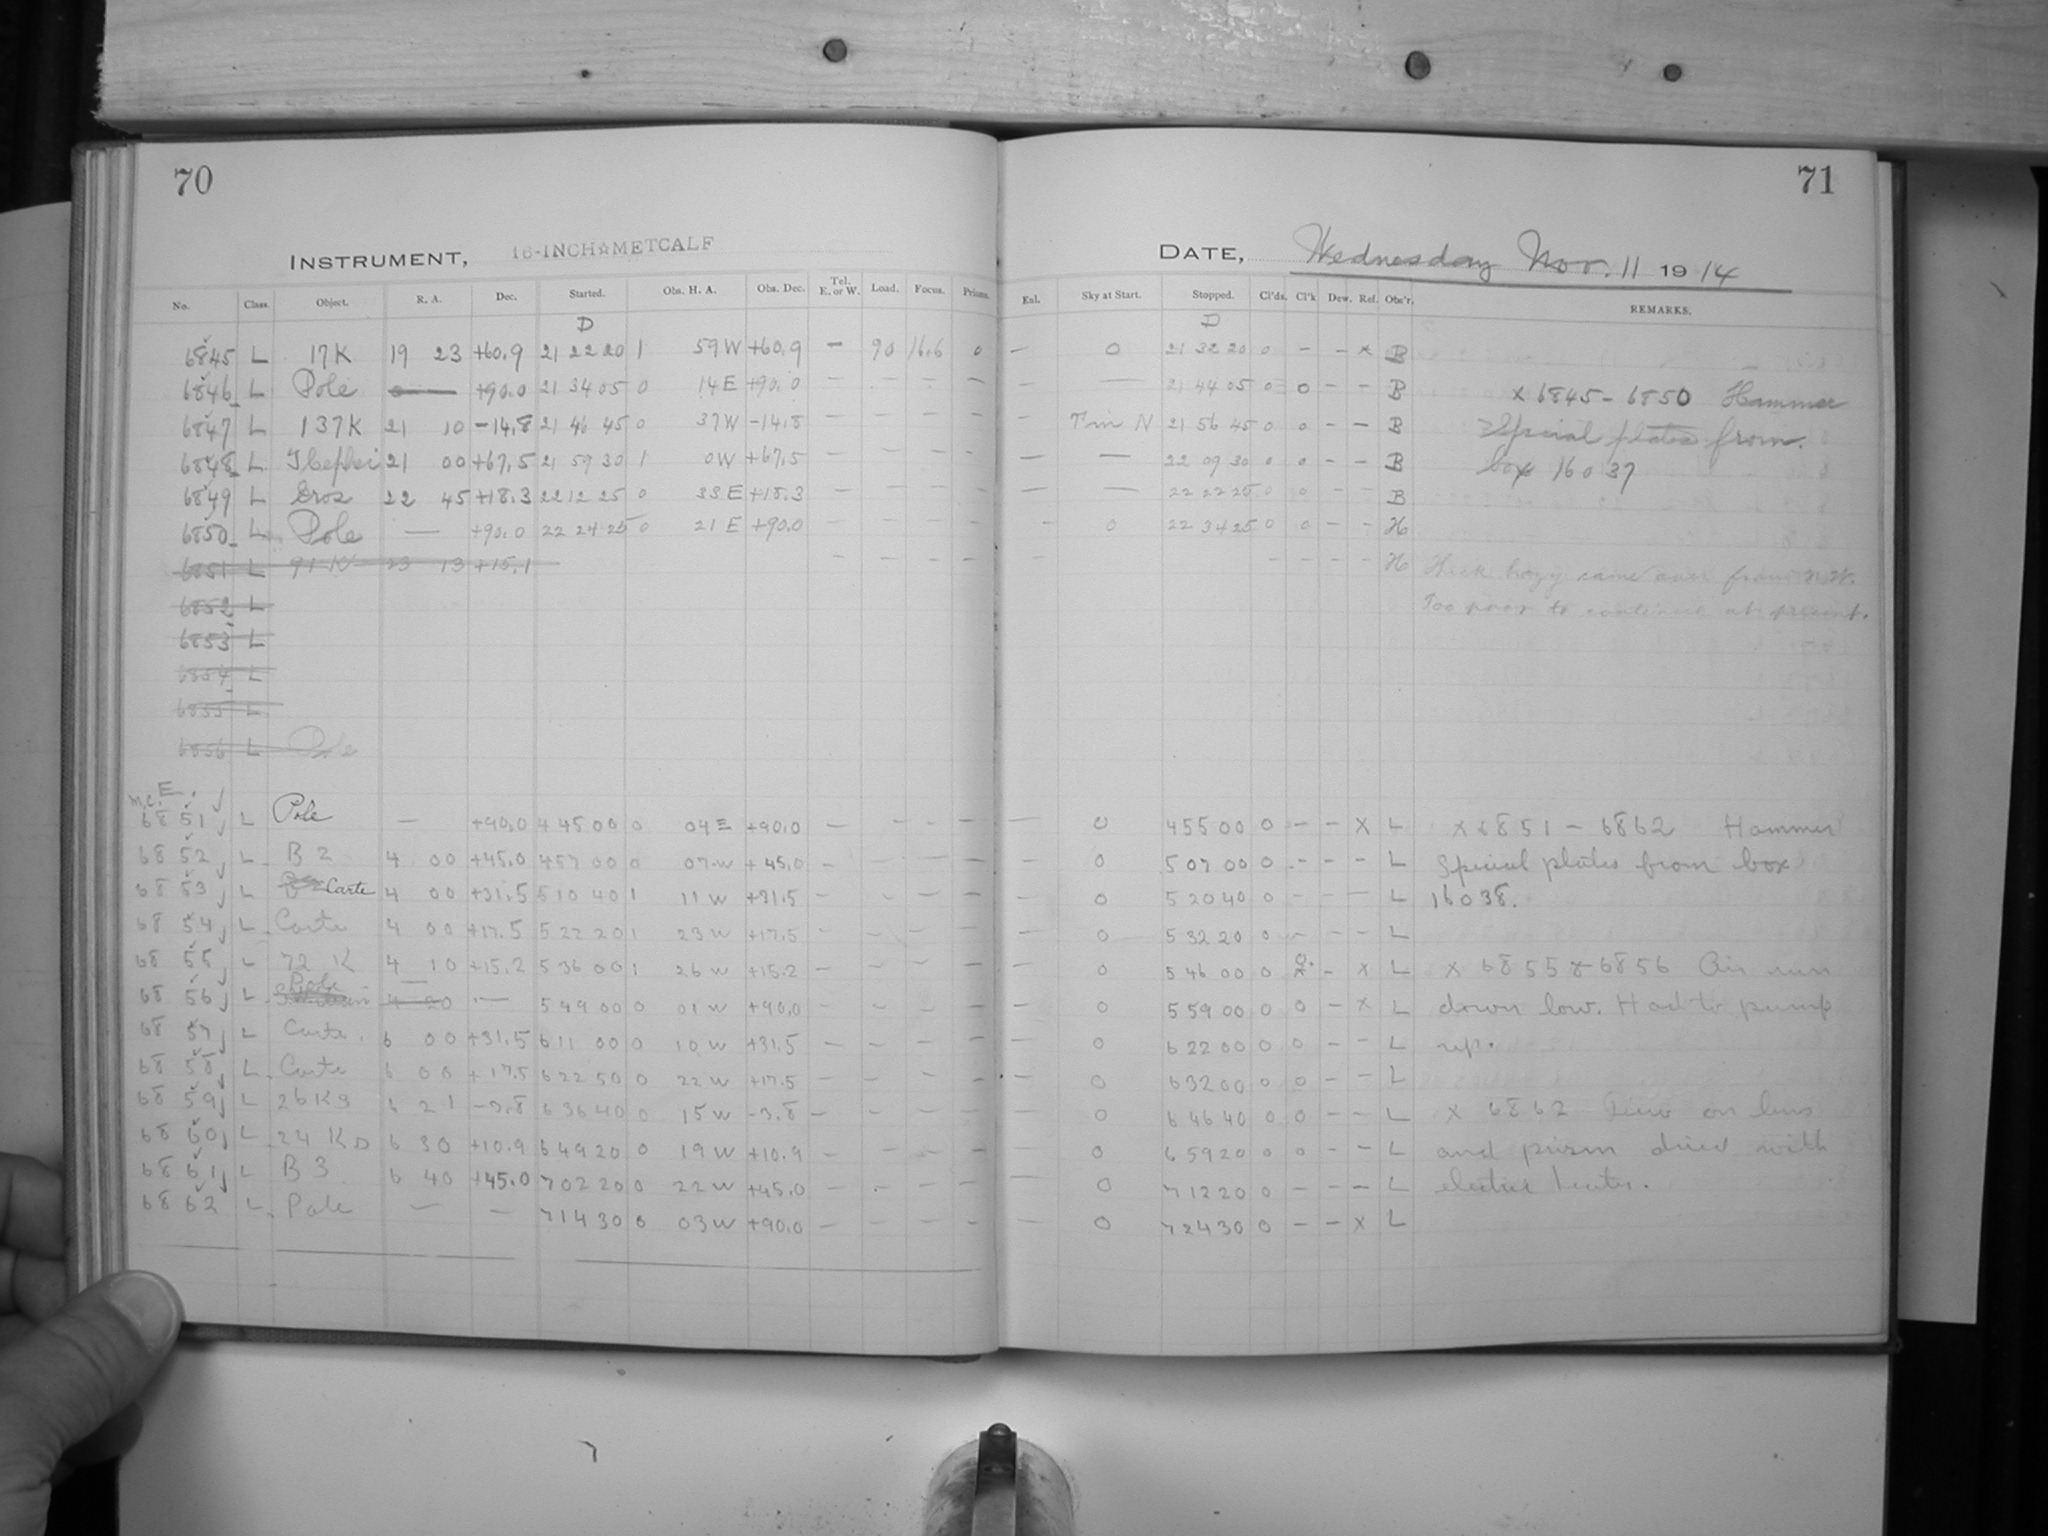 70
71
INSTRUMENT, 16-INCH☆METCALF
DATE, Wednesday Nov. 11 1914
No. Class. Object. R. A. Dec. Started. Obs. H. A. Obs. Dec. Tel. E. or W. Load. Focus. Prisms. Exl. Sky at Start. Stopped. Cl'ds. Cl'k Dew. Ref. Obs'r. REMARKS.
D D
6845 L 17K 19 23 +60.9 21 22 20 1 59 W +60.9 - 90 16.6 0 - 0 21 32 20 0 - - x B
6846 L Pole +90.0 21 34 05 0 14 E +90.0 - - - - - - 21 44 05 0 0 - - B x 6845 - 6850 Hammer
6847 L 137K 21 10 -14.8 21 46 45 0 37 W -14.8 - - - - - N 21 56 45 0 0 - - B Special plates from
6848 L T Cephei 21 00 +67.5 21 59 30 1 0 W +67.5 - - - - - - 22 09 30 0 0 - - B box 16037
6849 L Eros 22 45 +18.3 22 12 25 0 33 E +18.3 - - - - - - 22 22 25 0 0 - - B
6850 L Pole - +90.0 22 24 25 0 21 E +90.0 - - - - - 0 22 34 25 0 0 - - H
6851 L 91 K 23 13 +15.1 - - - - - - - - - H Thick hazy came over from N.W.
6852 L Too poor to continue at present.
6853 L
6854 L
6855 L
6856 L Pole
m.c. E.
68 51 L Pole - +90.0 4 45 00 0 04 E +90.0 - - - - - 0 4 55 00 0 - - X L x 6851 - 6862 Hammer
68 52 L B 2 4 00 +45.0 4 57 00 0 07 W +45.0 - - - - - 0 5 07 00 0 - - - L Special plates from box
68 53 L Carte 4 00 +31.5 5 10 40 1 11 W +31.5 - - - - - 0 5 20 40 0 - - - L 16038.
68 54 L Carte 4 00 +17.5 5 22 20 1 23 W +17.5 - - - - - 0 5 32 20 0 - - - L
68 55 L 72 K 4 10 +15.2 5 36 00 1 26 W +15.2 - - - - - 0 5 46 00 0 - x L x 6855 & 6856 Air run
68 56 L Pole 4 20 - 5 49 00 0 01 W +90.0 - - - - - 0 5 59 00 0 0 - x L down low. Had to pump
68 57 L Carte. 6 00 +31.5 6 11 00 0 10 W +31.5 - - - - - 0 6 22 00 0 0 - - L up.
68 58 L Carte 6 00 +17.5 6 22 50 0 22 W +17.5 - - - - - 0 6 32 00 0 0 - - L
68 59 L 26 K 6 21 -3.8 6 36 40 0 15 W -3.8 - - - - - 0 6 46 40 0 0 - - L x 6862 Dew on lens
68 60 L 24 K 6 30 +10.9 6 49 20 0 19 W +10.9 - - - - - 0 6 59 20 0 0 - - L and prism dried with
68 61 L B 3 6 40 +45.0 7 02 20 0 22 W +45.0 - - - - - 0 7 12 20 0 - - - L electric heater.
68 62 L Pole - - 7 14 30 0 03 W +90.0 - - - - - 0 7 24 30 0 - - x L